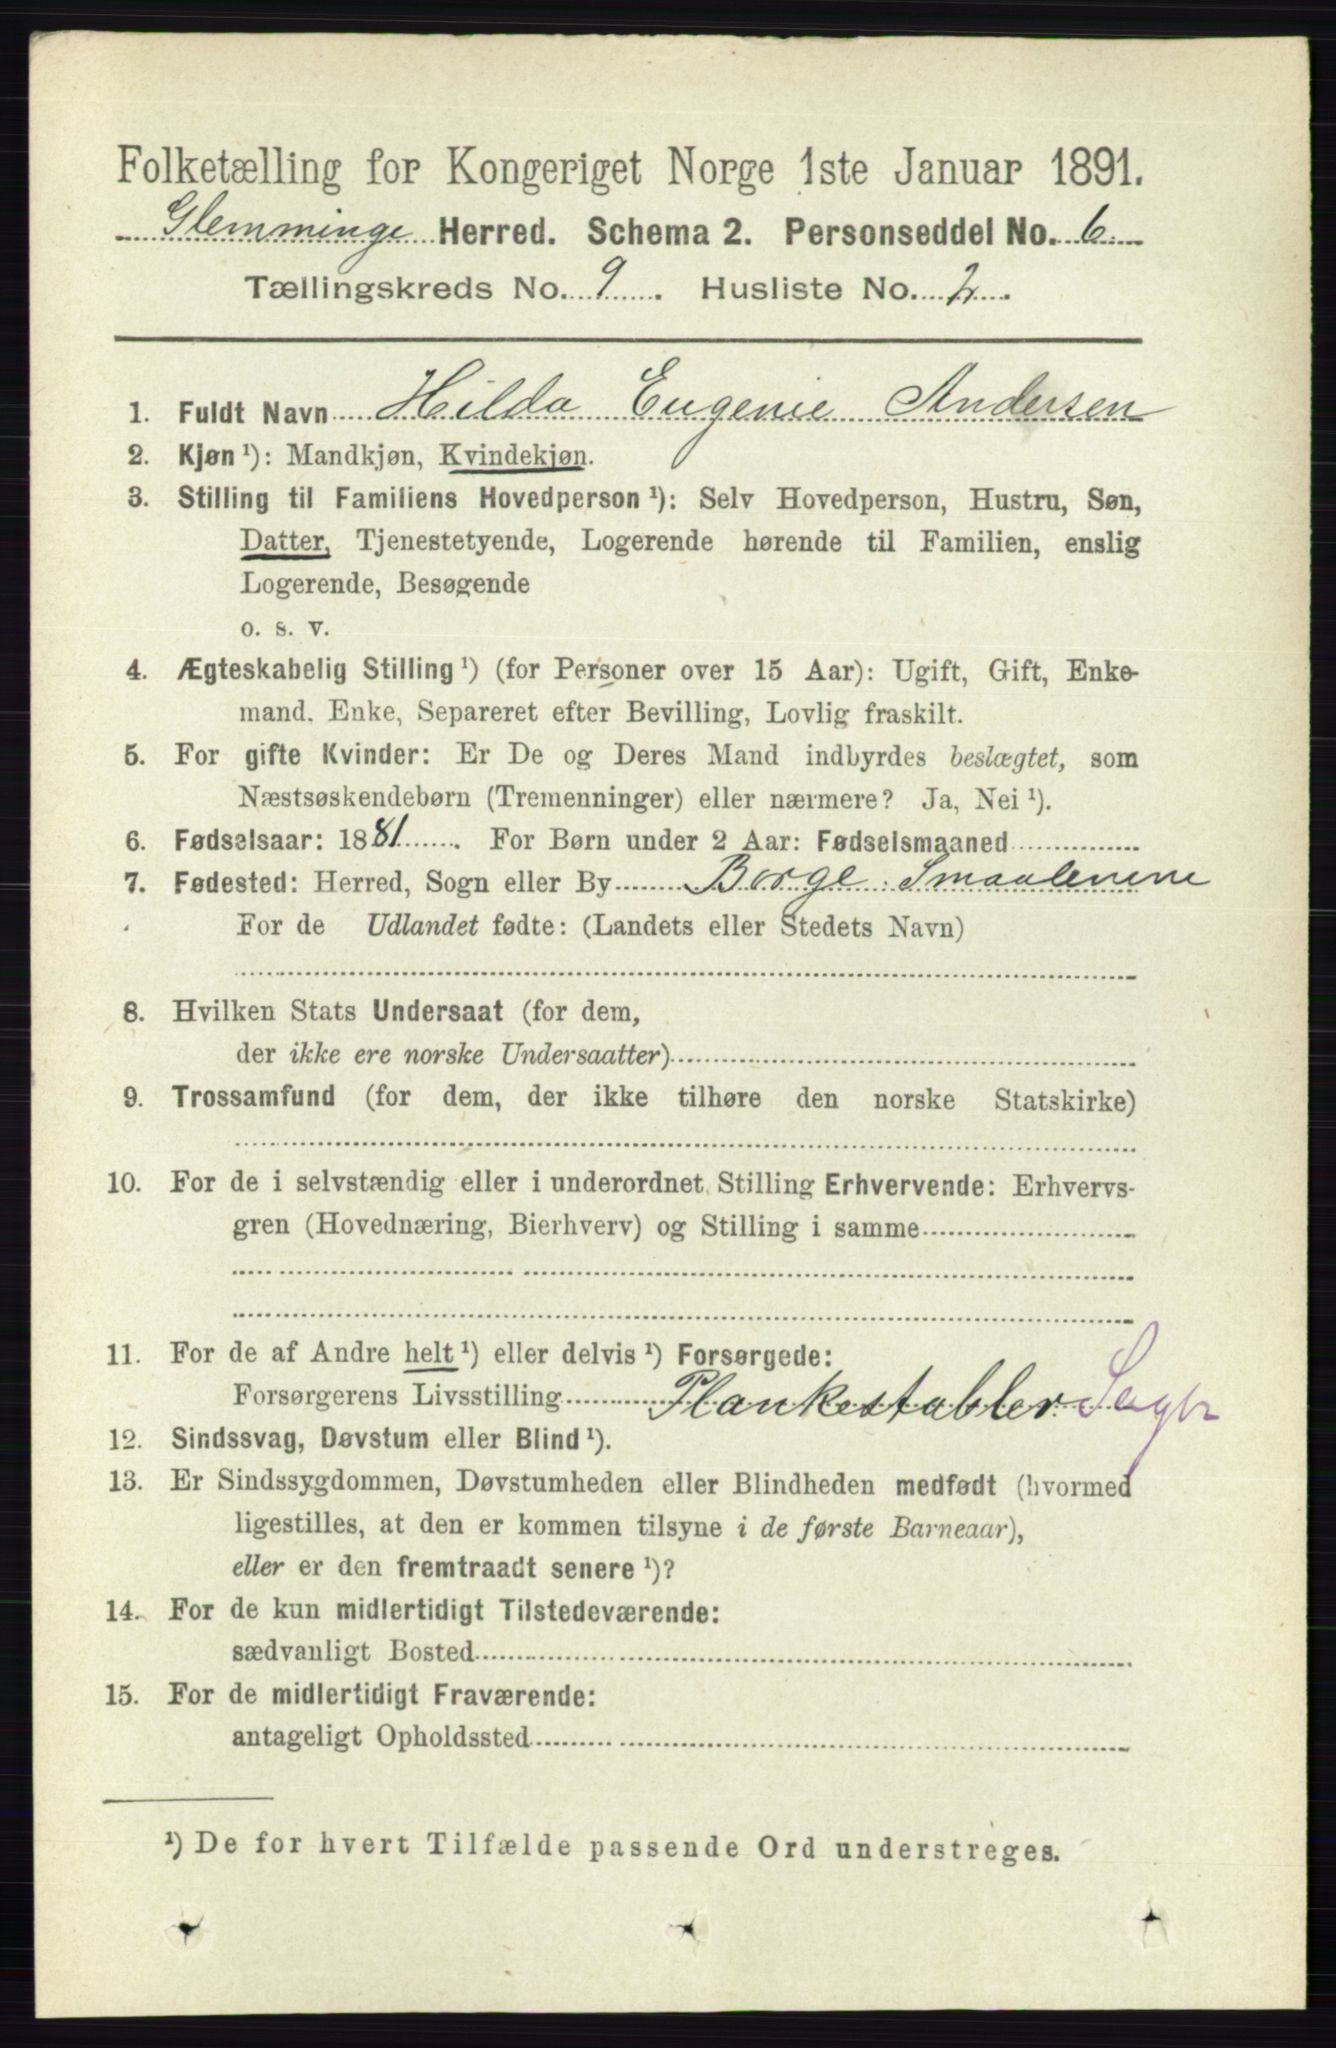 Folketælling for Kongeriget Norge 1ste Januar 1891.
Glemminge Herred. Schema 2. Personseddel No. 6
Tællingskreds No. 9. Husliste No. 2.
1. Fuldt Navn Hilda Eugenie Andersen
2. Kjøn ¹): Mandkjøn, Kvindekjøn.
3. Stilling til Familiens Hovedperson ¹): Selv Hovedperson, Hustru, Søn,
Datter, Tjenestetyende, Logerende hørende til Familien, enslig
Logerende, Besøgende
o. s. v.
4. Ægteskabelig Stilling ¹) (for Personer over 15 Aar): Ugift, Gift, Enke-
mand, Enke, Separeret efter Bevilling, Lovlig fraskilt.
5. For gifte Kvinder: Er De og Deres Mand indbyrdes beslægtet, som
Næstsøskendebørn (Tremenninger) eller nærmere? Ja, Nei ¹).
6. Fødselsaar: 1881. For Børn under 2 Aar: Fødselsmaaned
7. Fødested: Herred, Sogn eller By Borge Smaalenene
For de Udlandet fødte: (Landets eller Stedets Navn)
8. Hvilken Stats Undersaat (for dem,
der ikke ere norske Undersaatter)
9. Trossamfund (for dem, der ikke tilhøre den norske Statskirke)
10. For de i selvstændig eller i underordnet Stilling Erhvervende: Erhvervs-
gren (Hovednæring, Bierhverv) og Stilling i samme
11. For de af Andre helt ¹) eller delvis ¹) Forsørgede:
Forsørgerens Livsstilling Plankestabler
12. Sindssvag, Døvstum eller Blind ¹).
13. Er Sindssygdommen, Døvstumheden eller Blindheden medfødt (hvormed
ligestilles, at den er kommen tilsyne i de første Barneaar),
eller er den fremtraadt senere ¹)?
14. For de kun midlertidigt Tilstedeværende:
sædvanligt Bosted
15. For de midlertidigt Fraværende:
antageligt Opholdssted
¹) De for hvert Tilfælde passende Ord understreges.